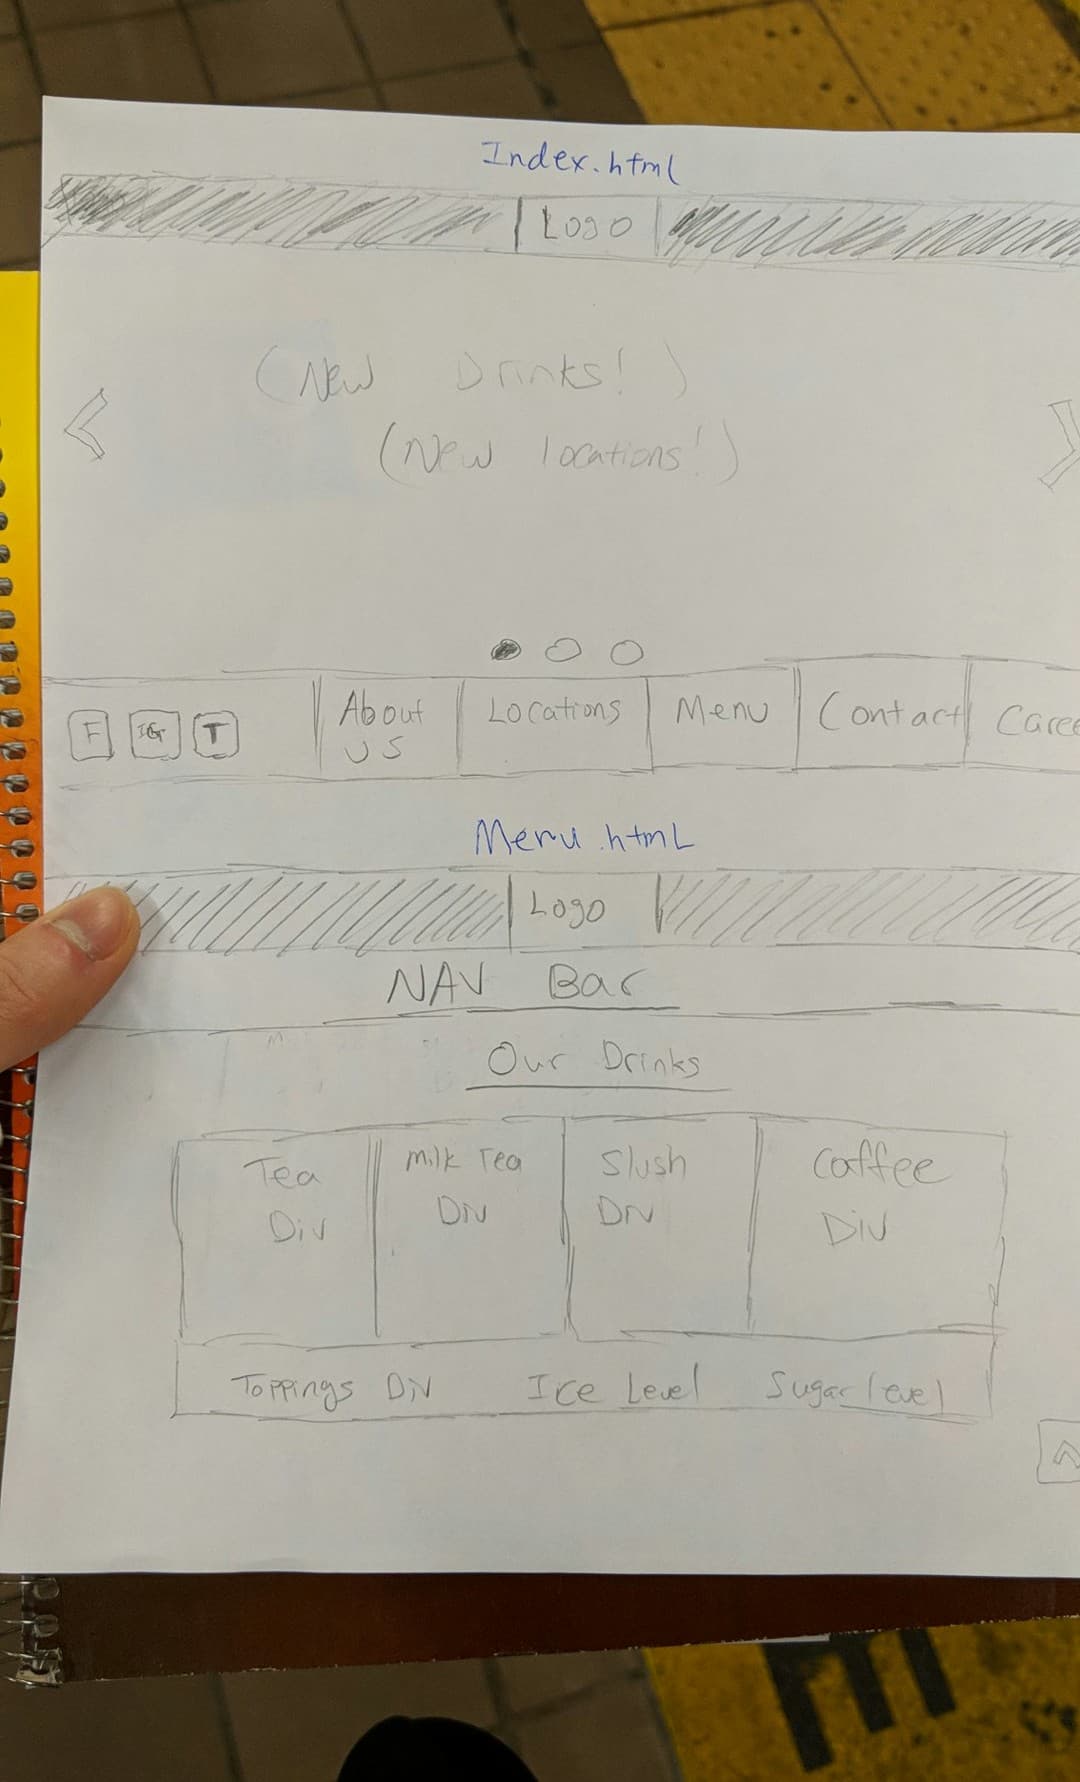 Index.html
Logo
(New Drinks!)
(New locations!)
F IG T About us Locations Menu Contact Caree
Menu.html
Logo
NAV Bar
Our Drinks
Tea Div
Milk Tea Div
Slush Div
Coffee Div
Toppings Div Ice Level Sugar level